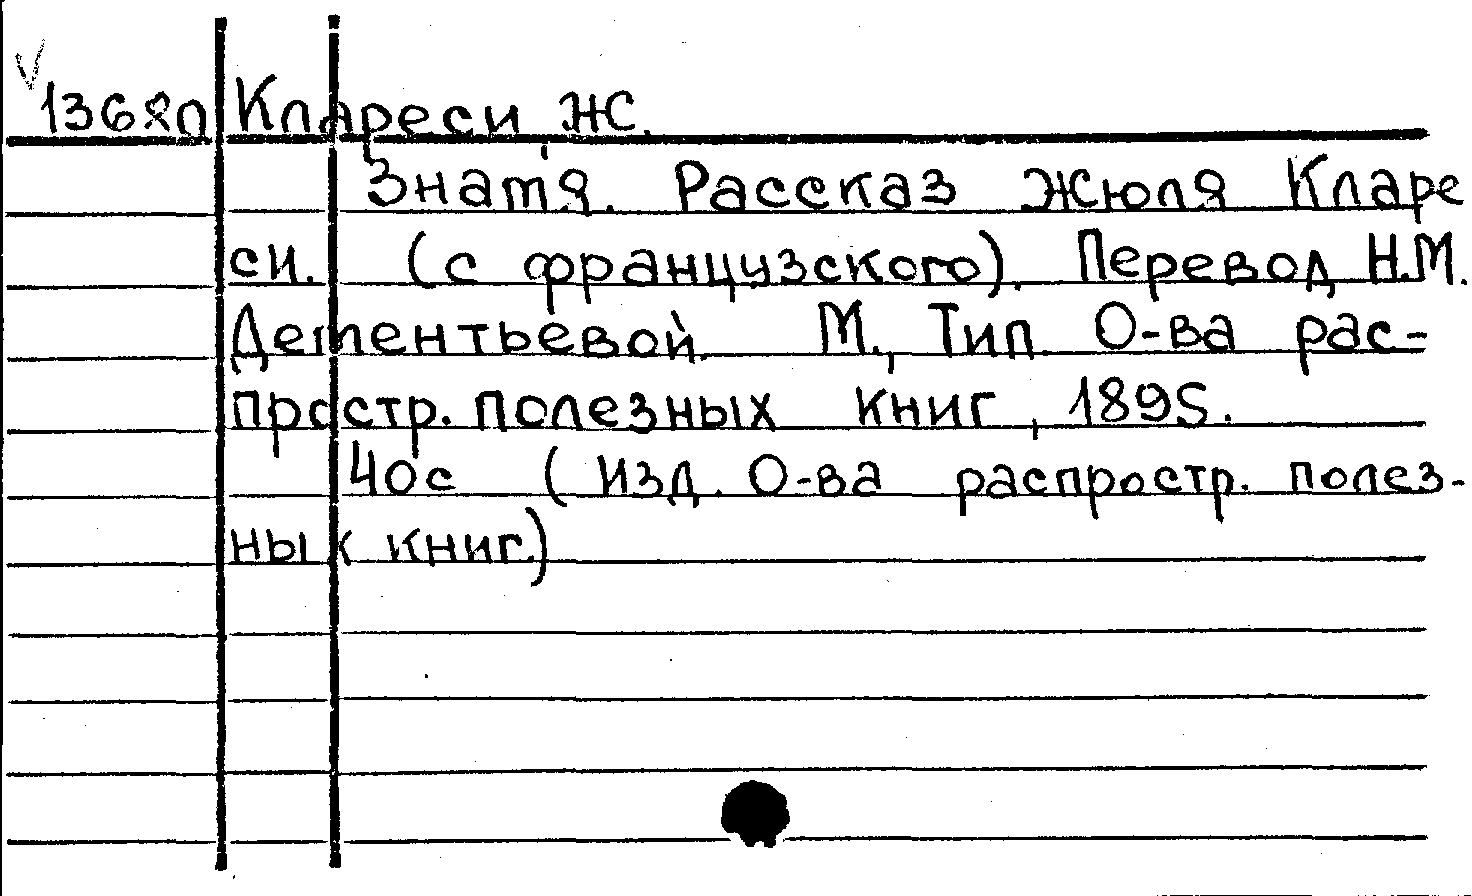 13680 Клареси Ж.
Знатя. Рассказ Жюля Кларе
си. (с французского). Перевод Н.М.
Дементьевой. М., Тип. О-ва рас-
простр. полезных книг, 1895.
40с (Изд. О-ва распростр. полез-
ных книг.)